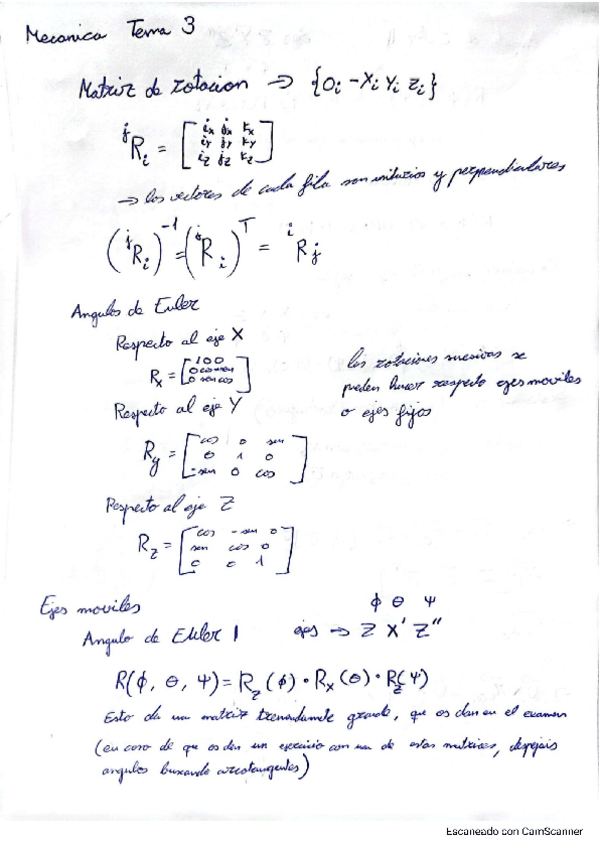 Mecanica Tema 3
Matriz de rotacion → {Oi - Xi Yi Zi}
ʲRᵢ = [ix jx kx
iy jy ky
iz jz kz]
→ los vectores de cada fila son unitarios y perpendiculares
(ʲRᵢ)⁻¹ = (ʲRᵢ)ᵀ = ⁱRⱼ
Angulos de Euler
Respecto al eje X
Rx = [1 0 0
0 cos -sen
0 sen cos]
las rotaciones sucesivas se
pueden hacer respecto ejes moviles
o ejes fijos
Respecto al eje Y
Ry = [cos 0 sen
0 1 0
-sen 0 cos]
Respecto al eje Z
Rz = [cos -sen 0
sen cos 0
0 0 1]
Ejes moviles
ϕ θ ψ
Angulo de Euler 1 ejes → Z X' Z''
R(ϕ, θ, ψ) = Rz(ϕ) · Rx(θ) · Rz(ψ)
Esto da una matriz tremendamente grande, que os dan en el examen
(en caso de que os den un ejercicio con una de estas matrices, despejais
angulos buscando arcotangentes)
Escaneado con CamScanner